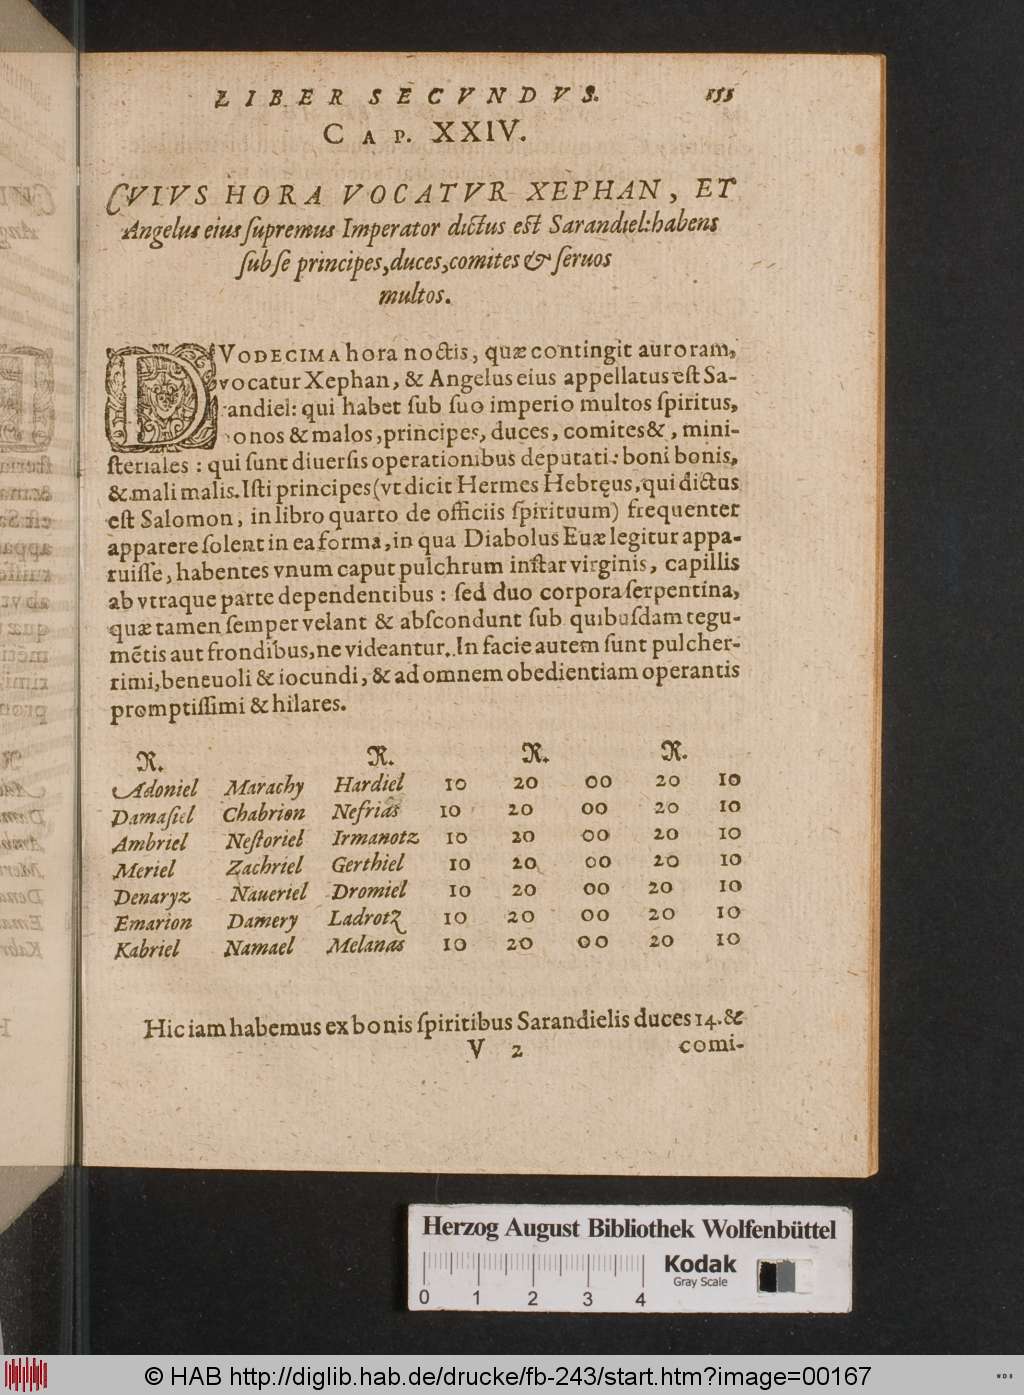 LIBER SECVNDVS. 155
CAP. XXIV.
CVIVS HORA VOCATVR XEPHAN, ET
Angelus eius ſupremus Imperator dictus eſt Sarandiel: habens
ſub ſe principes, duces, comites & ſeruos
multos.
DVODECIMA hora noctis, quæ contingit auroram,
vocatur Xephan, & Angelus eius appellatus eſt Sa-
randiel: qui habet ſub ſuo imperio multos ſpiritus,
bonos & malos, principes, duces, comites &, mini-
ſteriales : qui ſunt diuerſis operationibus deputati: boni bonis,
& mali malis. Iſti principes (vt dicit Hermes Hebręus, qui dictus
eſt Salomon, in libro quarto de officiis ſpirituum) frequenter
apparere ſolent in ea forma, in qua Diabolus Euæ legitur appa-
ruiſſe, habentes vnum caput pulchrum inſtar virginis, capillis
ab vtraque parte dependentibus : ſed duo corpora ſerpentina,
quæ tamen ſemper velant & abſcondunt ſub quibuſdam tegu-
mētis aut frondibus, ne videantur. In facie autem ſunt pulcher-
rimi, beneuoli & iocundi, & ad omnem obedientiam operantis
promptiſſimi & hilares.
R. R. R. R.
Adoniel Marachy Hardiel 10 20 00 20 10
Damaſiel Chabrion Nefrias 10 20 00 20 10
Ambriel Neſtoriel Irmanotz 10 20 00 20 10
Meriel Zachriel Gerthiel 10 20 00 20 10
Denaryz Naueriel Dromiel 10 20 00 20 10
Emarion Damery Ladrotz 10 20 00 20 10
Kabriel Namael Melanas 10 20 00 20 10
Hic iam habemus ex bonis ſpiritibus Sarandielis duces 14. &
V 2 comi-
Herzog August Bibliothek Wolfenbüttel
Kodak
Gray Scale
0 1 2 3 4
© HAB http://diglib.hab.de/drucke/fb-243/start.htm?image=00167